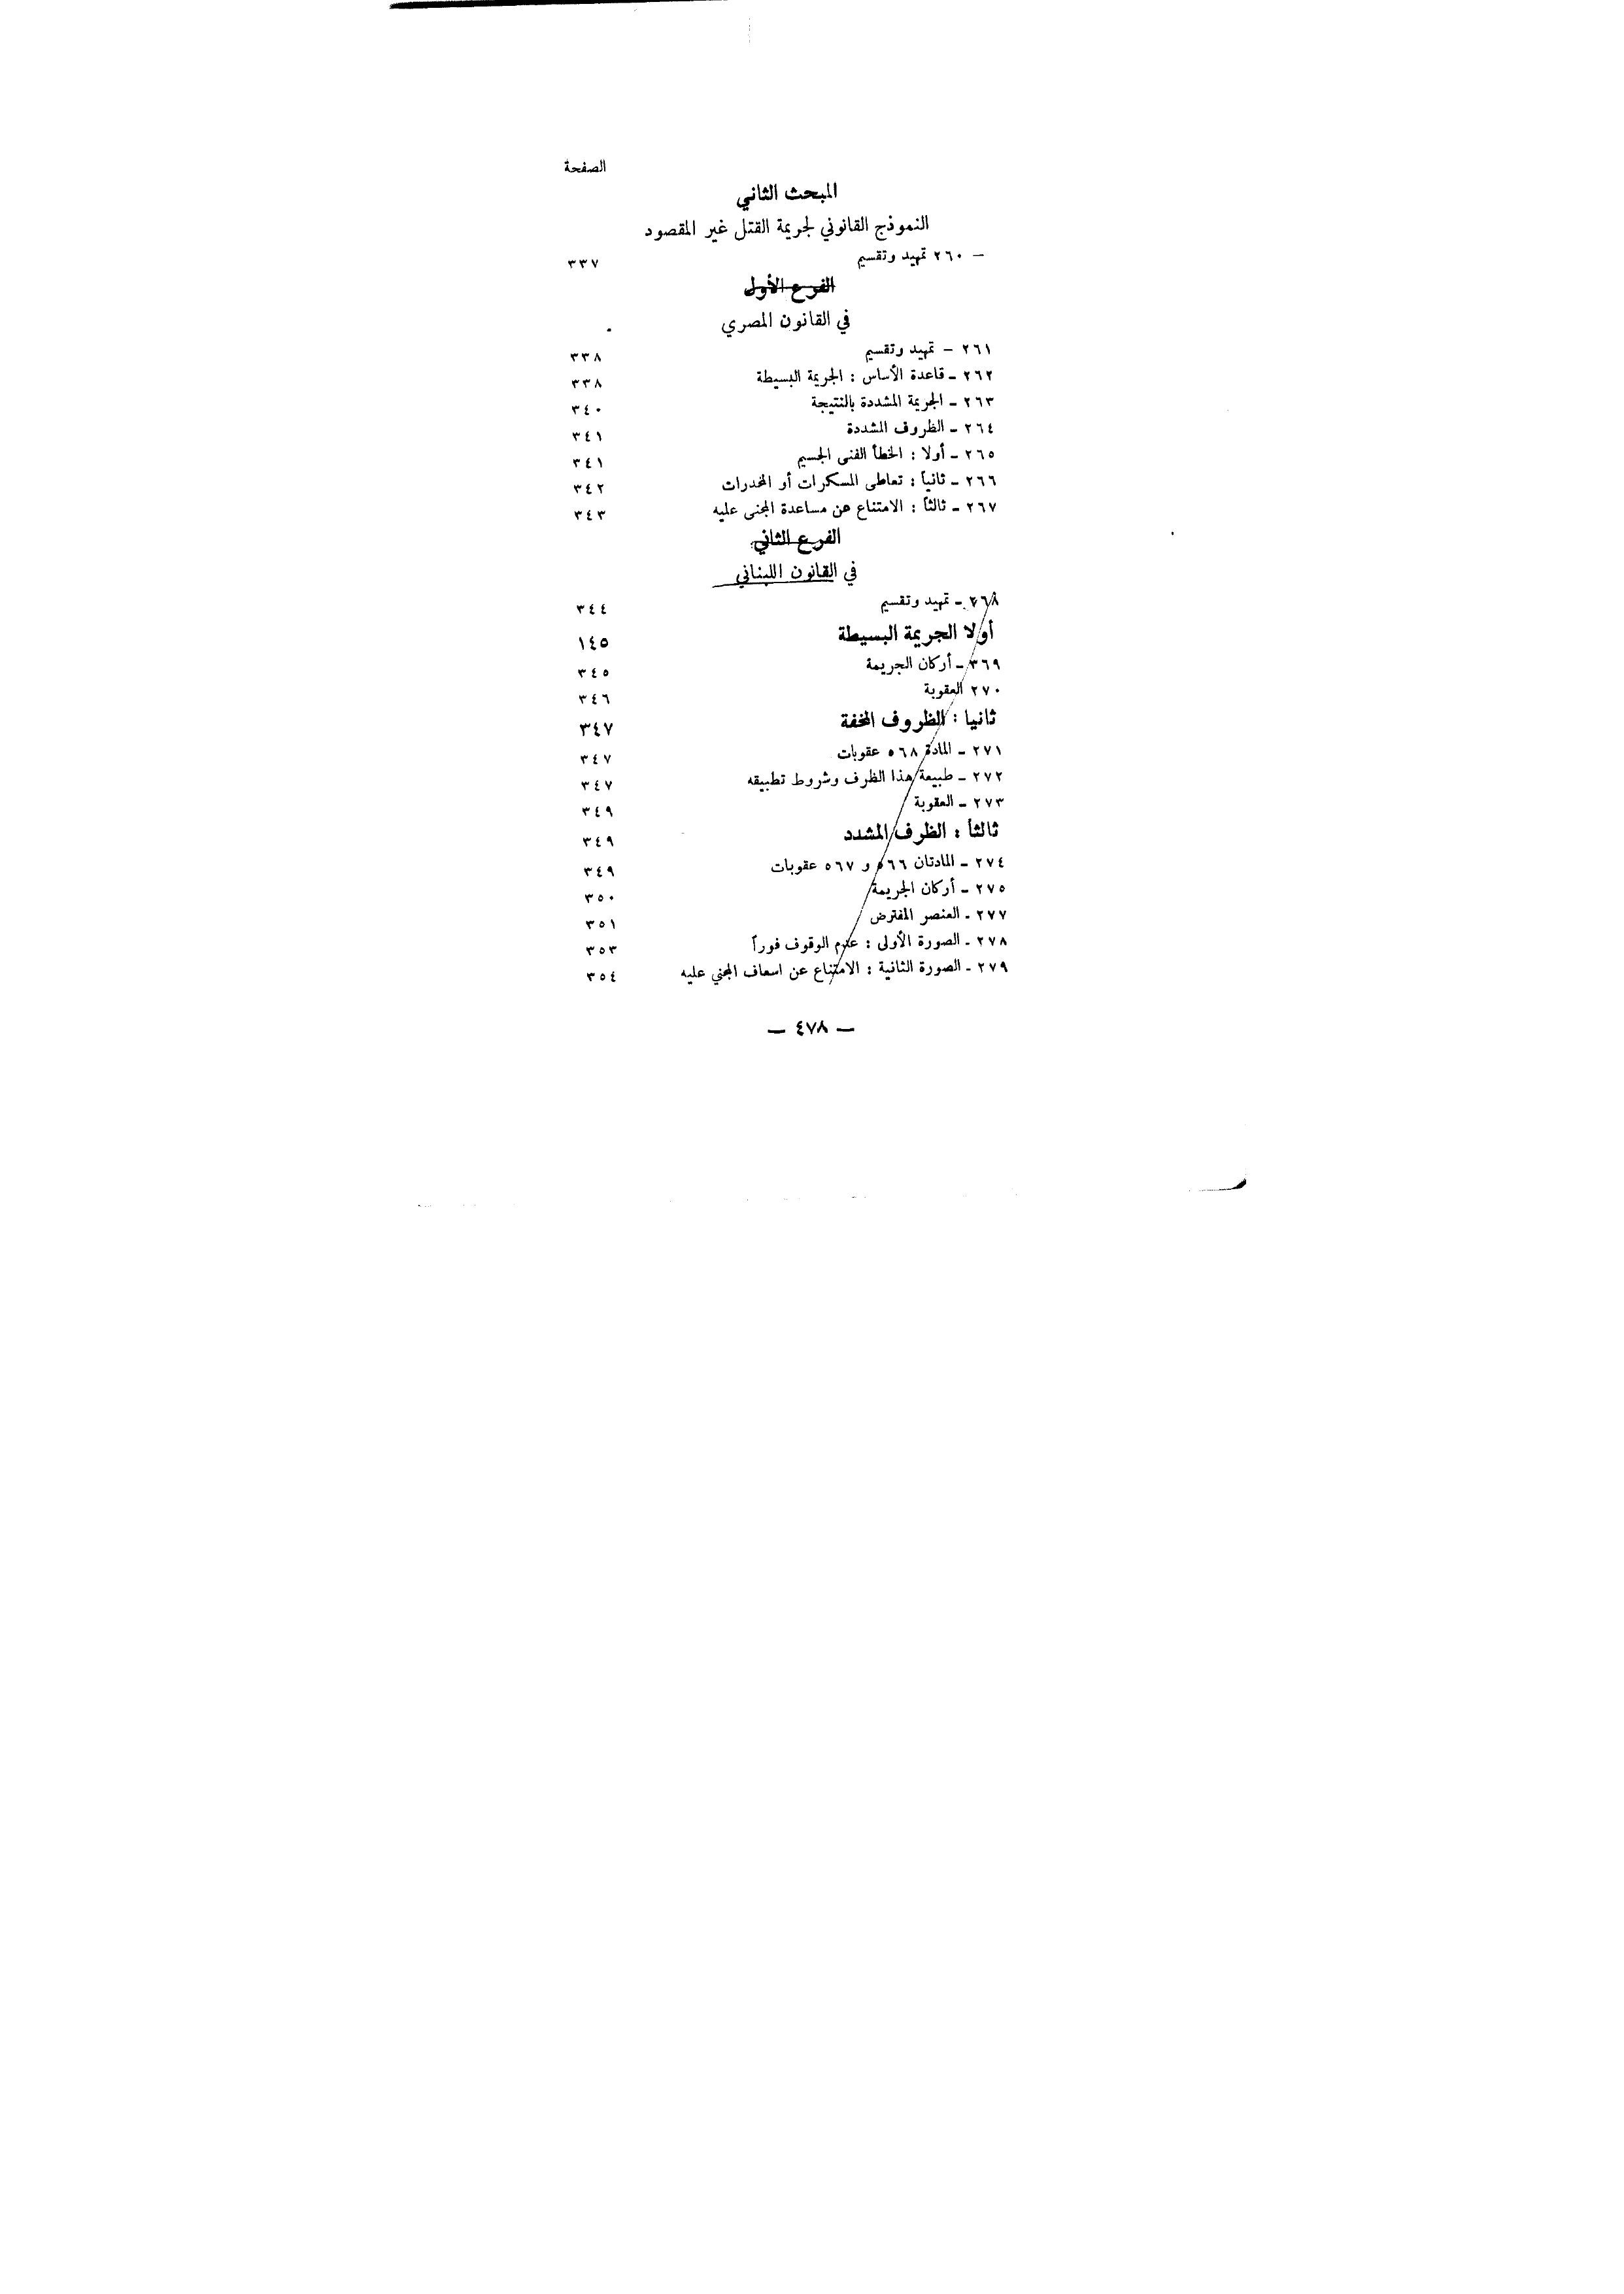 الصفحة
المبحث الثاني
النموذج القانوني لجريمة القتل غير المقصود
— ٢٦٠ تمهيد وتقسيم ٣٣٧
الفرع الأول
في القانون المصري
٢٦١ – تمهيد وتقسيم ٣٣٨
٢٦٢ - قاعدة الأساس : الجريمة البسيطة ٣٣٨
٢٦٣ - الجريمة المشددة بالنتيجة ٣٤٠
٢٦٤ - الظروف المشددة ٣٤١
٢٦٥ - أولا : الخطأ الفنى الجسيم ٣٤١
٢٦٦ - ثانياً : تعاطى المسكرات أو المخدرات ٣٤٢
٢٦٧ - ثالثاً : الامتناع عن مساعدة المجنى عليه ٣٤٣
الفرع الثاني
في القانون اللبناني
٢٦٨ - تمهيد وتقسيم ٣٤٤
أولا الجريمة البسيطة ١٤٥
٣٦٩ - أركان الجريمة ٣٤٥
٢٧٠ العقوبة ٣٤٦
ثانيا : الظروف المخفة ٣٤٧
٢٧١ - المادة ٥٦٨ عقوبات ٣٤٧
٢٧٢ - طبيعة هذا الظرف وشروط تطبيقه ٣٤٧
٢٧٣ - العقوبة ٣٤٩
ثالثاً : الظرف المشدد ٣٤٩
٢٧٤ - المادتان ٥٦٦ و ٥٦٧ عقوبات ٣٤٩
٢٧٥ - أركان الجريمة ٣٥٠
٢٧٧ - العنصر المفترض ٣٥١
٢٧٨ - الصورة الأولى : عدم الوقوف فوراً ٣٥٣
٢٧٩ - الصورة الثانية : الامتناع عن اسعاف المجني عليه ٣٥٤
— ٤٧٨ —